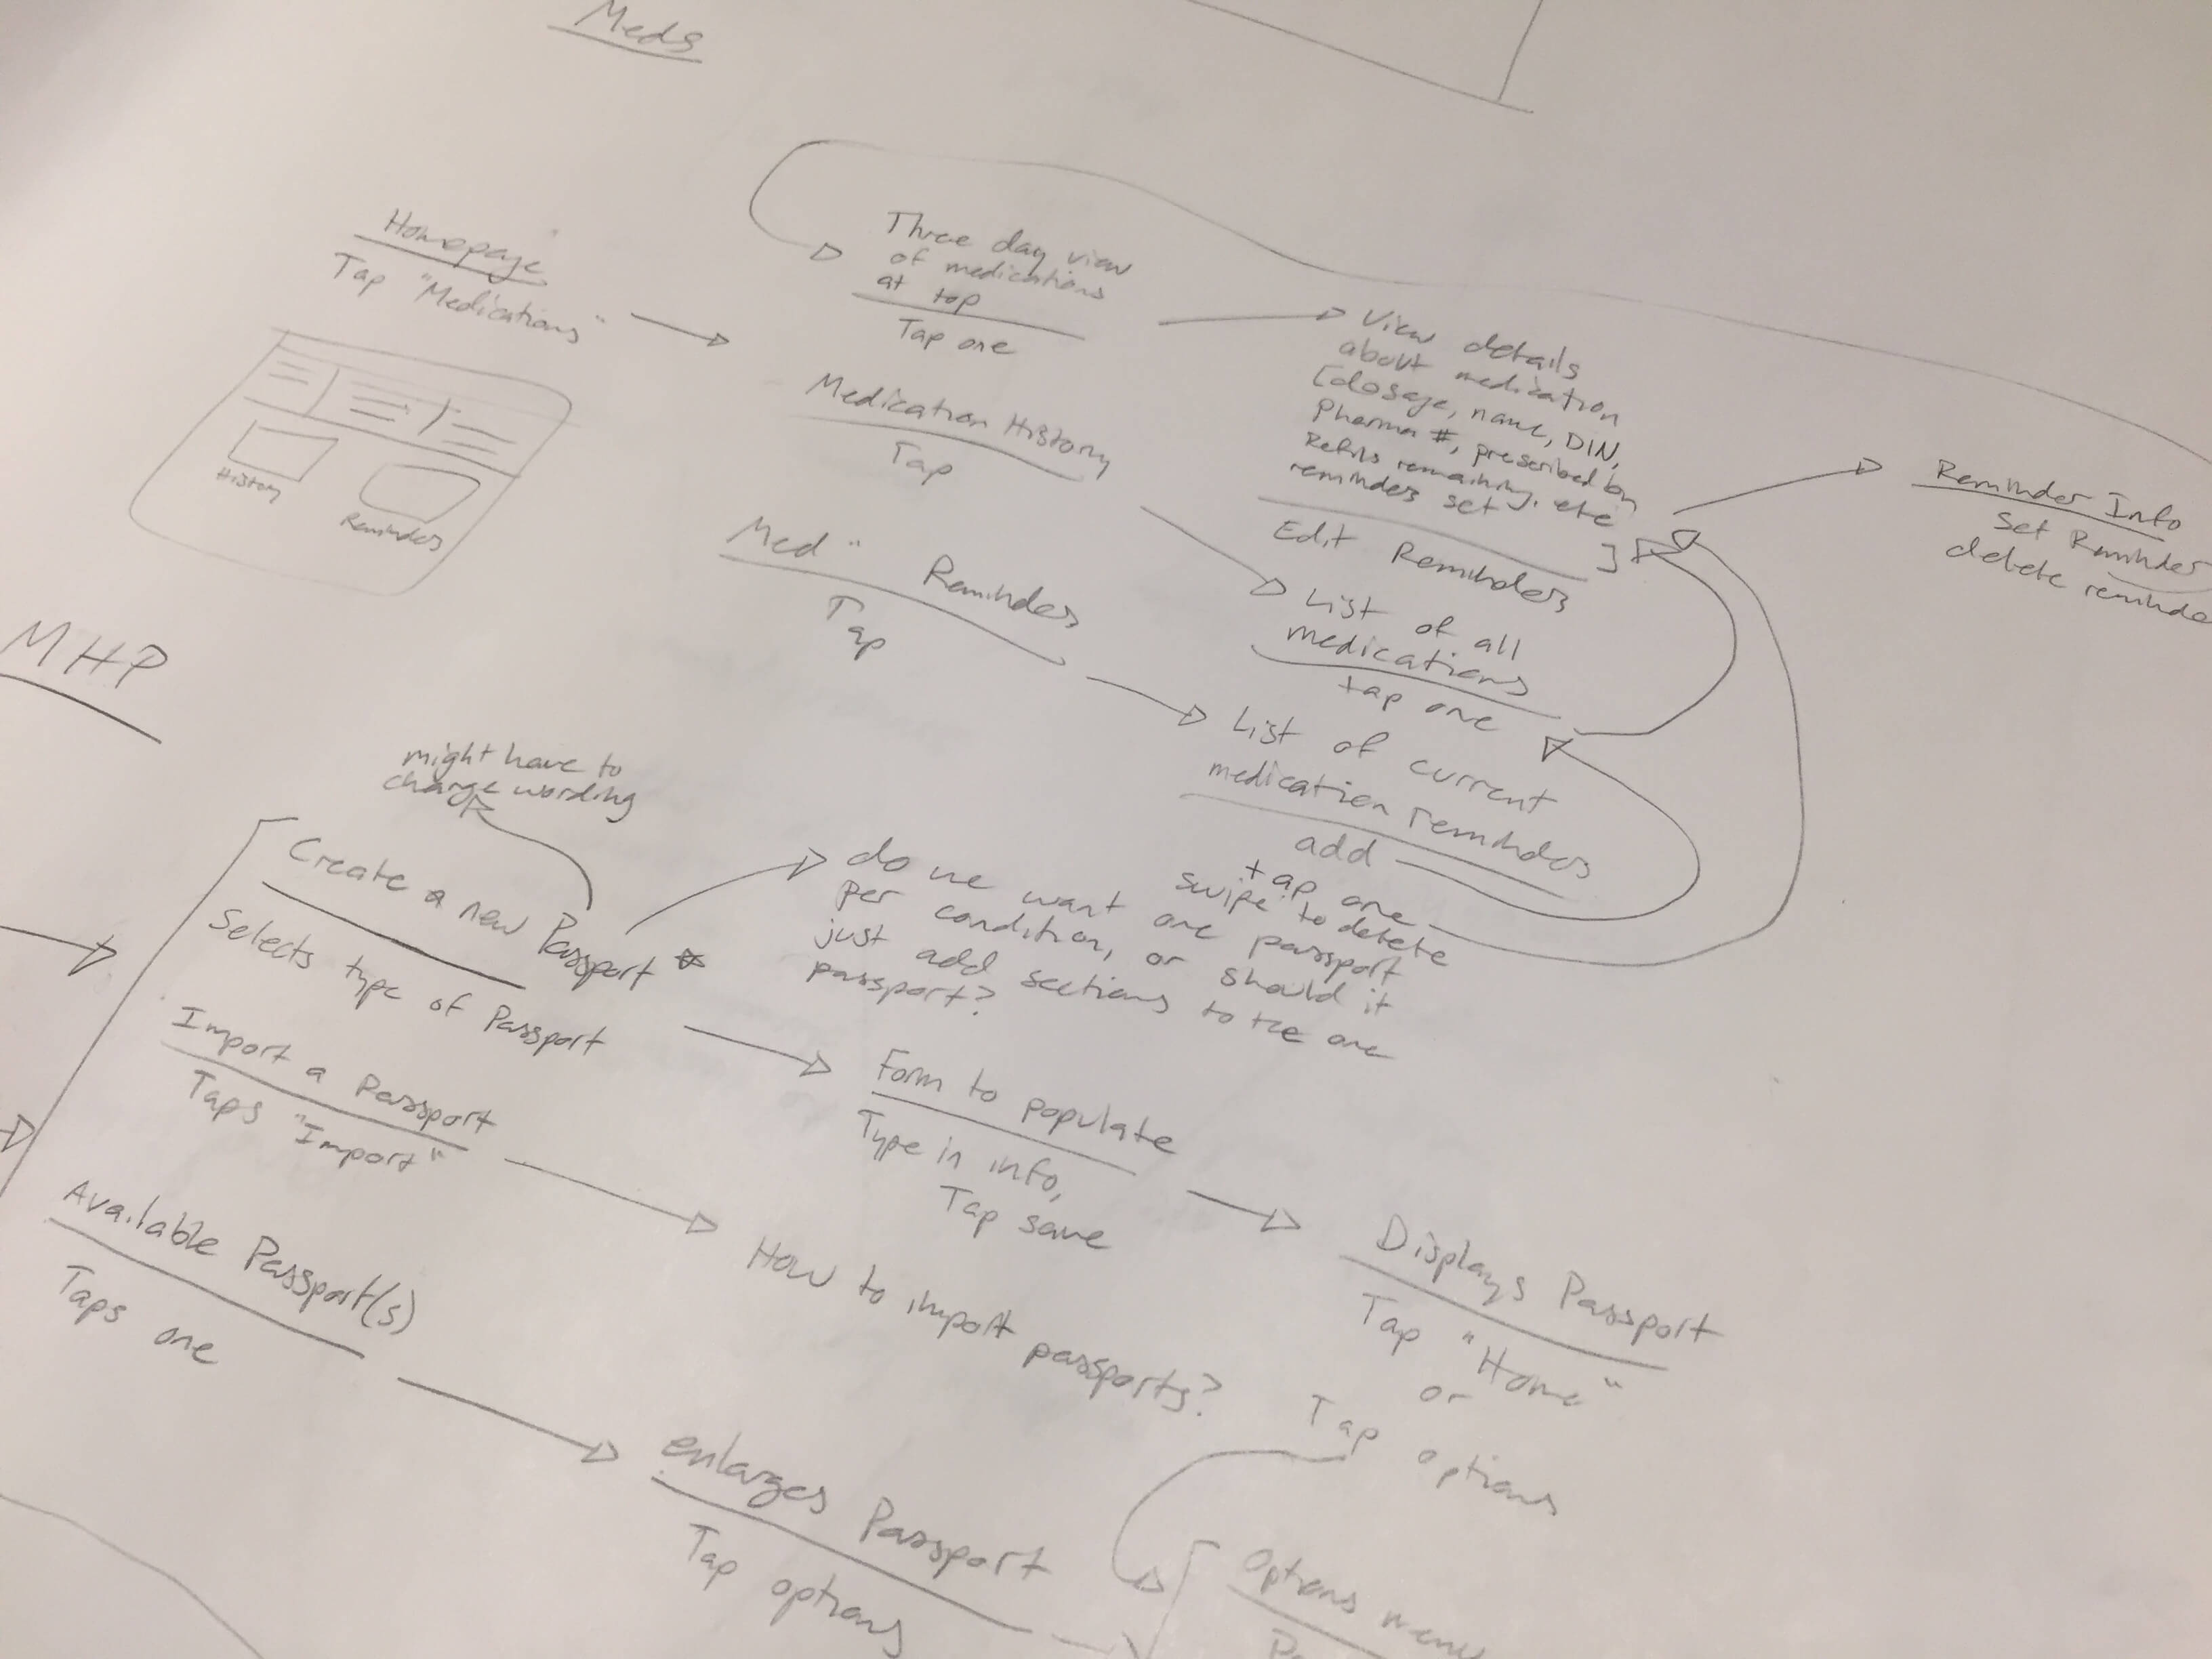 Meds
Homepage
Tap "Medications"
History
Reminders
Three day view
of medications
at top
Tap one
Medication History
Tap
Med " Reminders
Tap
View details
about medication
[dosage, name, DIN,
Pharma #, prescribed by
Refills remaining, etc
reminders set ]
Edit Reminders
Reminder Info
Set Reminder
delete reminde
List of all
medications
tap one
List of current
medication reminders
add
tap one
swipe to delete
MHP
might have to
change wording
Create a new Passport *
Selects type of Passport
do we want one passport
per condition, or should it
just add sections to the one
passport?
Import a Passport
Taps "Import"
Form to populate
Type in info,
Tap save
Available Passport(s)
Taps one
How to import passports?
Displays Passport
Tap "Home"
or
Tap options
enlarges Passport
Tap options
Options menu